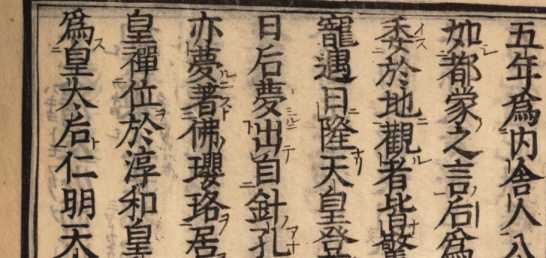 五年爲内舍人八
如都蒙之言后爲
委於地觀者皆驚
寵遇日隆天皇登
日后夢出自針孔
亦夢著佛瓔珞居
皇禪位於淳和皇
爲皇太后仁明天